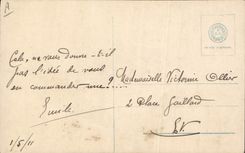 Cela, ne vous donne-t-il
pas l'idée de vous
en commander une ?....
Emile
1/5/11
Mademoiselle Victorine Ollier
2 Place Gaillard
E.V.